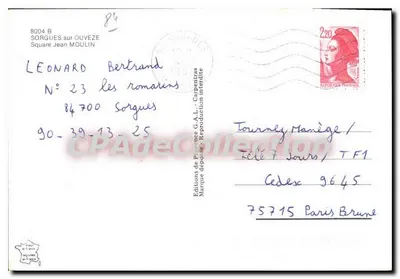 84
8004 B
SORGUES sur OUVEZE
Square Jean MOULIN
LEONARD Bertrand
N° 23 les romarins
84700 Sorgues
90-39-13-25
Editions de Provence G.A.L. - Carpentras
Marque déposée - Reproduction interdite
2,20
Tournez Manège/
Télé 7 Jours/ TF1
Cedex 9645
75715 Paris Brune
CPAdeCollection